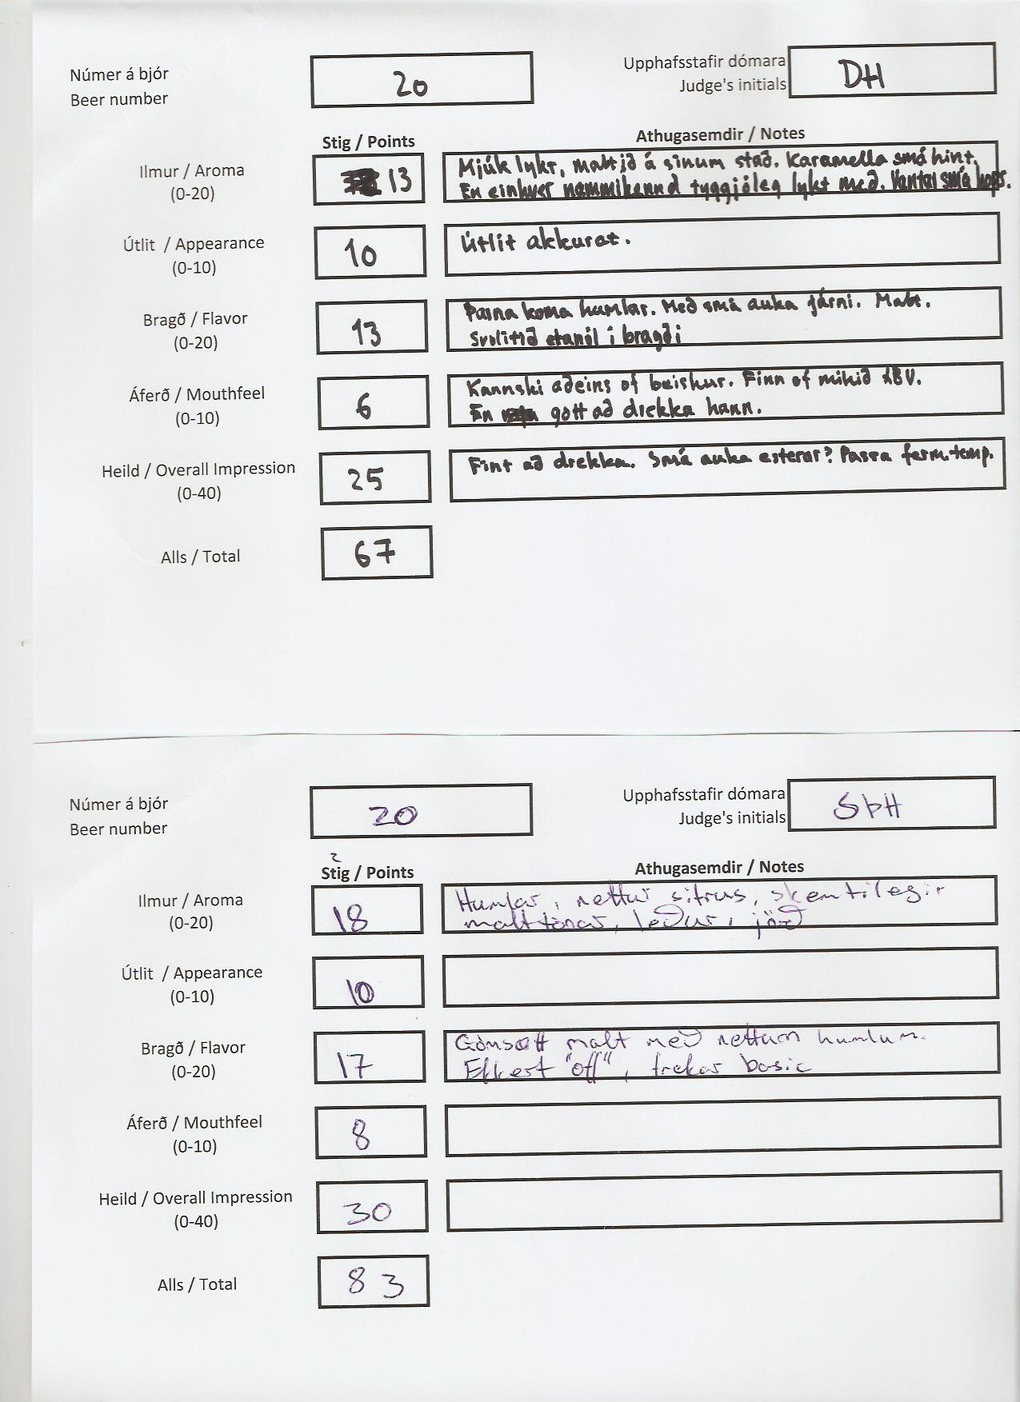 Númer á bjór
Beer number
20
Upphafsstafir dómara
Judge's initials
DH
Stig / Points
Athugasemdir / Notes
Ilmur / Aroma
(0-20)
13
Mjúk lykt, maltið á sinum stað. Karamella smá hint.
En einhver nammikennd tyggjóleg lykt með. Vantar smá hops.
Útlit / Appearance
(0-10)
10
Útlit akkurat.
Bragð / Flavor
(0-20)
13
koma humlar. Með smá auka járni. Malt.
Svolitið etanól i bragði
Áferð / Mouthfeel
(0-10)
6
Kannski aðeins of beiskur. Finn of mikið ABV.
En gott að drekka hann.
Heild / Overall Impression
(0-40)
25
Fint að drekka. Smá auka esterar? Passa ferm.temp.
Alls / Total
67
Númer á bjór
Beer number
20
Upphafsstafir dómara
Judge's initials
SÞH
Stig / Points
Athugasemdir / Notes
Ilmur / Aroma
(0-20)
18
Humlar, nettur sitrus, skemtilegir
malttónar, leður, jörð
Útlit / Appearance
(0-10)
10
Bragð / Flavor
(0-20)
17
Gómsætt malt með nettum humlum.
Ekkert "off", frekar basic
Áferð / Mouthfeel
(0-10)
8
Heild / Overall Impression
(0-40)
30
Alls / Total
83